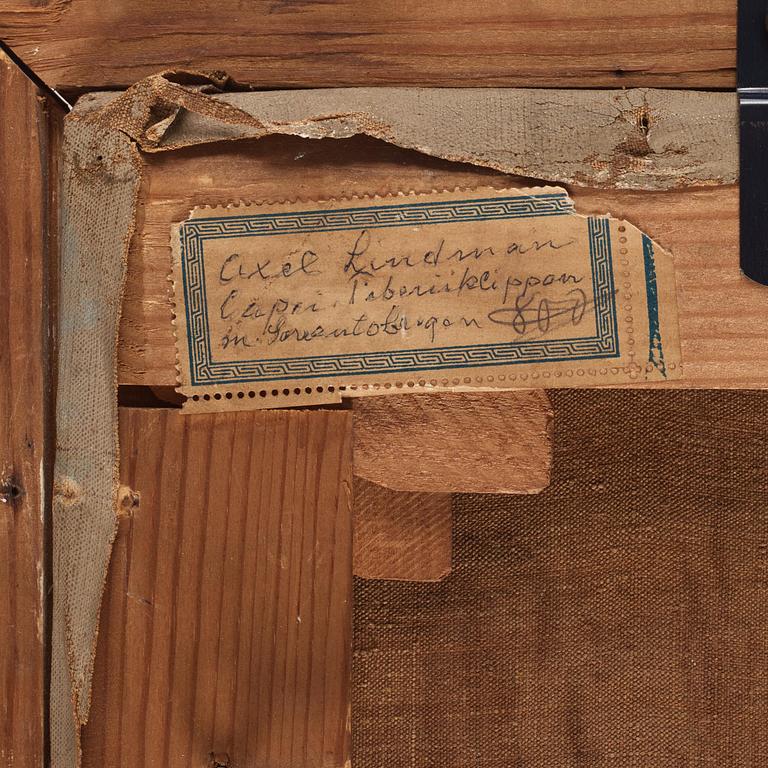 Axel Lindman
Capri. Tiberiiklippan
m. Sorrentobugen